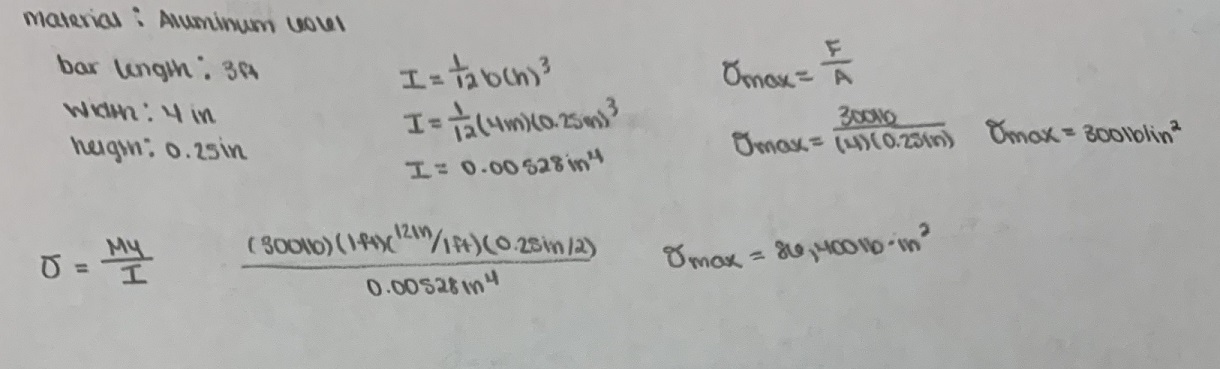 material : Aluminum 6061
bar length : 3ft
width : 4 in
height : 0.25in
I = 1/12 b(h)^3
I = 1/12 (4in)(0.25in)^3
I = 0.00528in^4
σmax = F/A
σmax = 300lb/(4)(0.25in) σmax = 300lb/in^2
σ = My/I (300lb)(1ft)(12in/1ft)(0.25in/2)/0.00528in^4 σmax = 86,400lb·in^2